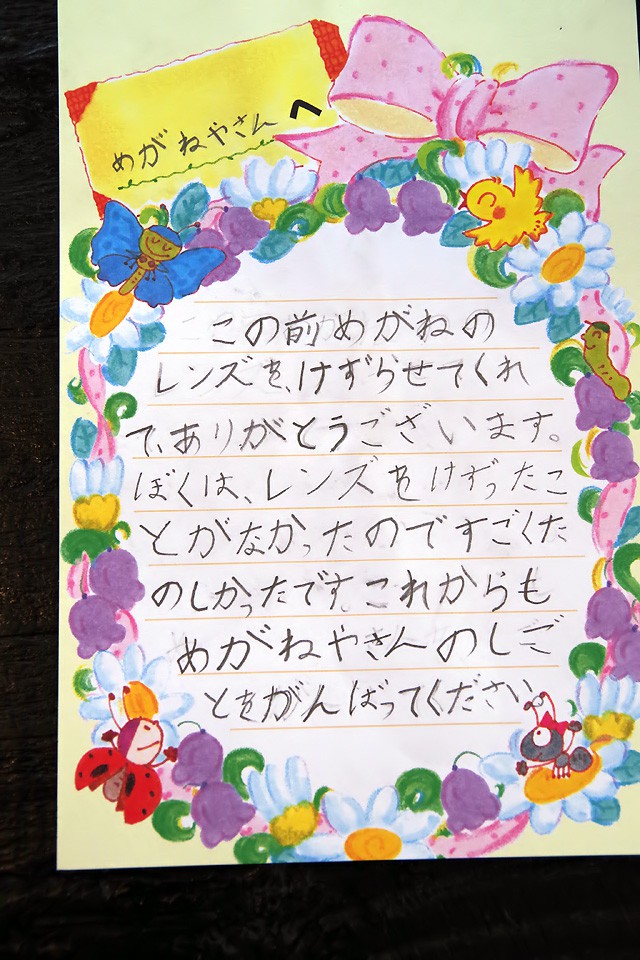 めがねやさんへ
この前めがねの
レンズを、けずらせてくれ
て、ありがとうございます。
ぼくは、レンズをけずったこ
とがなかったのですごくた
のしかったです。これからも
めがねやさんのしご
とをがんばってください